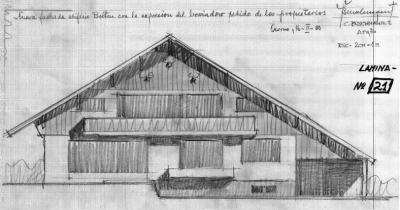 Nueva fachada edificio Betton con la expresion del boxindow pedido de los propietarios
16-II-80
C. BUSCHMANN Z
ARQTO
ESC-2CM-1M
LAMINA-
Nº 21